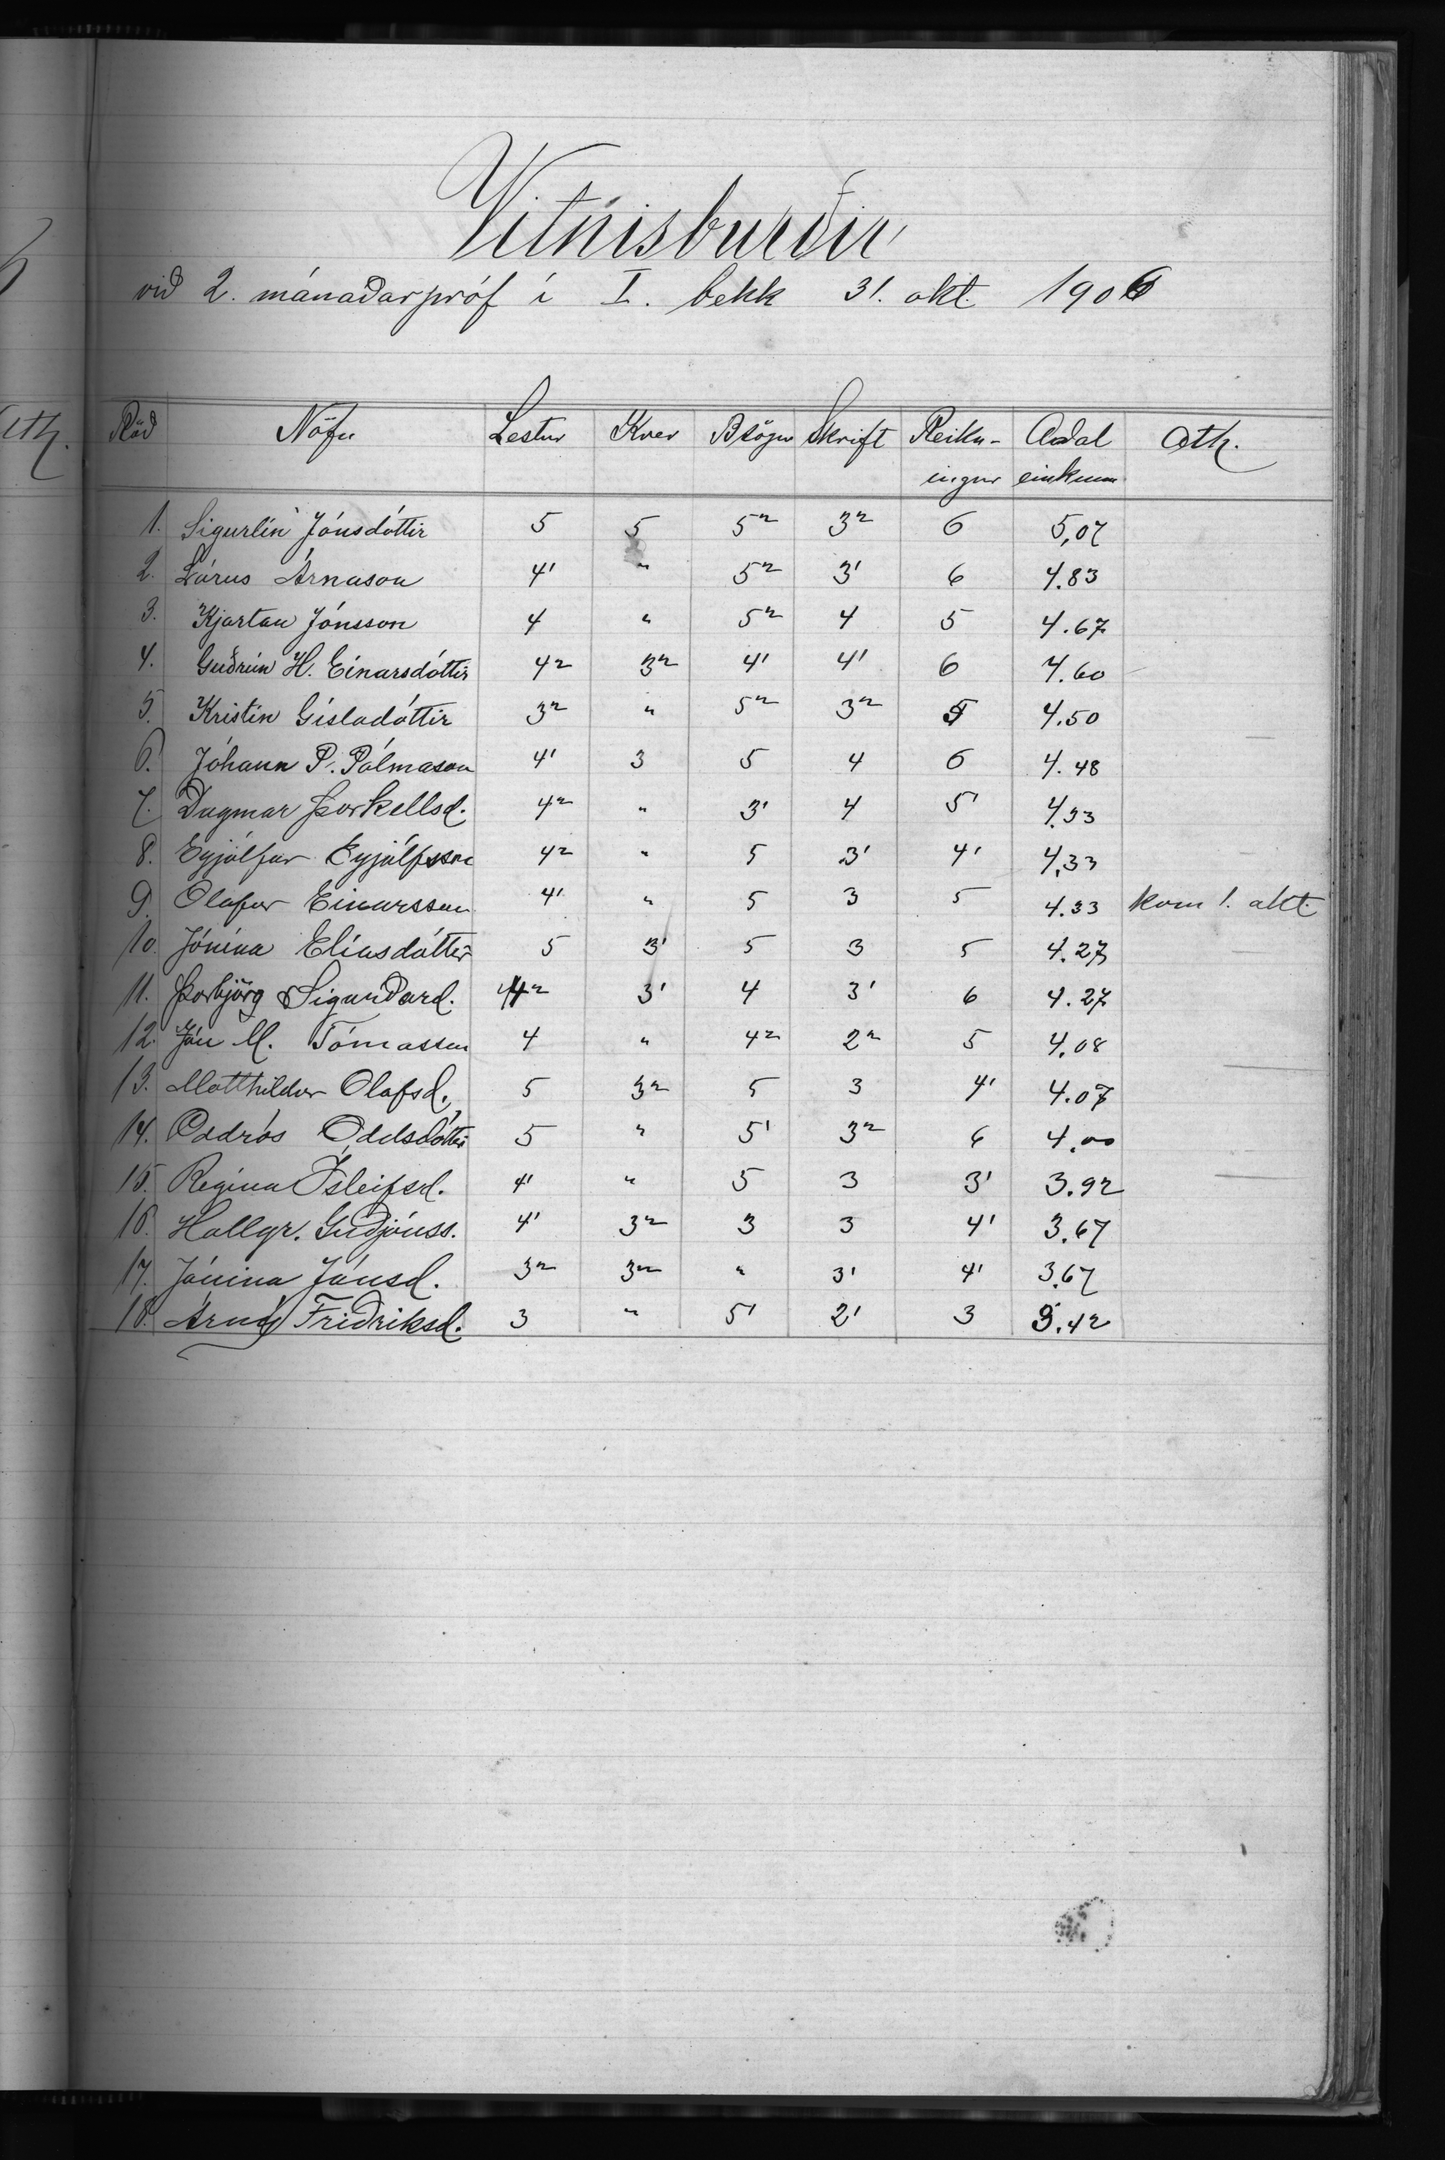 Vitnisburðir
við 2. mánaðarpróf í I. bekk 31. okt. 1906
Röð Nöfn Lestur Kver Bsögur Skrift Reikn- Aðal Ath.
ingur einkunn
1. Sigurlín Jónsdóttir 5 5 5² 3² 6 5,07
2. Lárus Árnason 4' " 5² 3' 6 4.83
3. Kjartan Jónsson 4 " 5² 4 5 4.67
4. Guðrún H. Einarsdóttir 4² 3² 4' 4' 6 4.60
5. Kristín Gísladóttir 3² " 5² 3² 5 4.50
6. Jóhann P. Pálmason 4' 3 5 4 6 4.48
7. Dagmar Þorkellsd. 4² " 3' 4 5' 4.33
8. Eyjólfur Eyjólfsson 4² " 5 3' 4' 4,33
9. Olafur Einarsson 4' " 5 3 5 4.33 kom 1. okt.
10. Jónína Elíasdóttir 5 3' 5 3 5 4.27
11. Þorbjörg Sigurðard. 4² 3' 4 3' 6 4.27
12. Jón M. Tómasson 4 " 4² 2² 5 4,08
13. Matthildur Olafsd. 5 3² 5 3 4' 4.07
14. Oddrós Oddsdóttir 5 " 5' 3² 6 4.00
15. Regína Ísleifsd. 4' " 5 3 3' 3.92
16. Hallgr. Guðjónss. 4' 3² 3 3 4' 3.67
17. Jónína Jónsd. 3² 3² " 3' 4' 3.67
18. Árný Friðriksd. 3 " 5' 2' 3 3.42